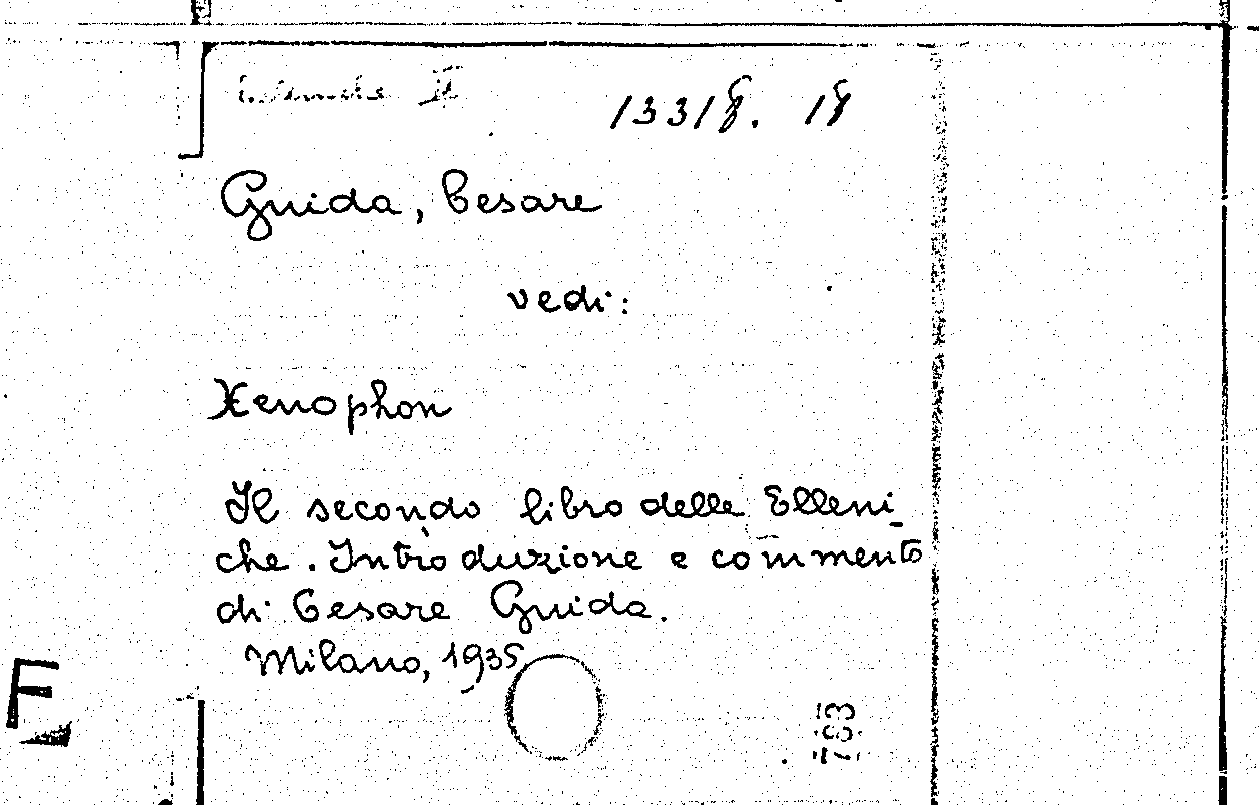 13318. 18
Guida, Cesare
vedi:
Xenophon
Il secondo libro delle Elleni_
che. Introduzione e commento
di Cesare Guida.
Milano, 1935
F